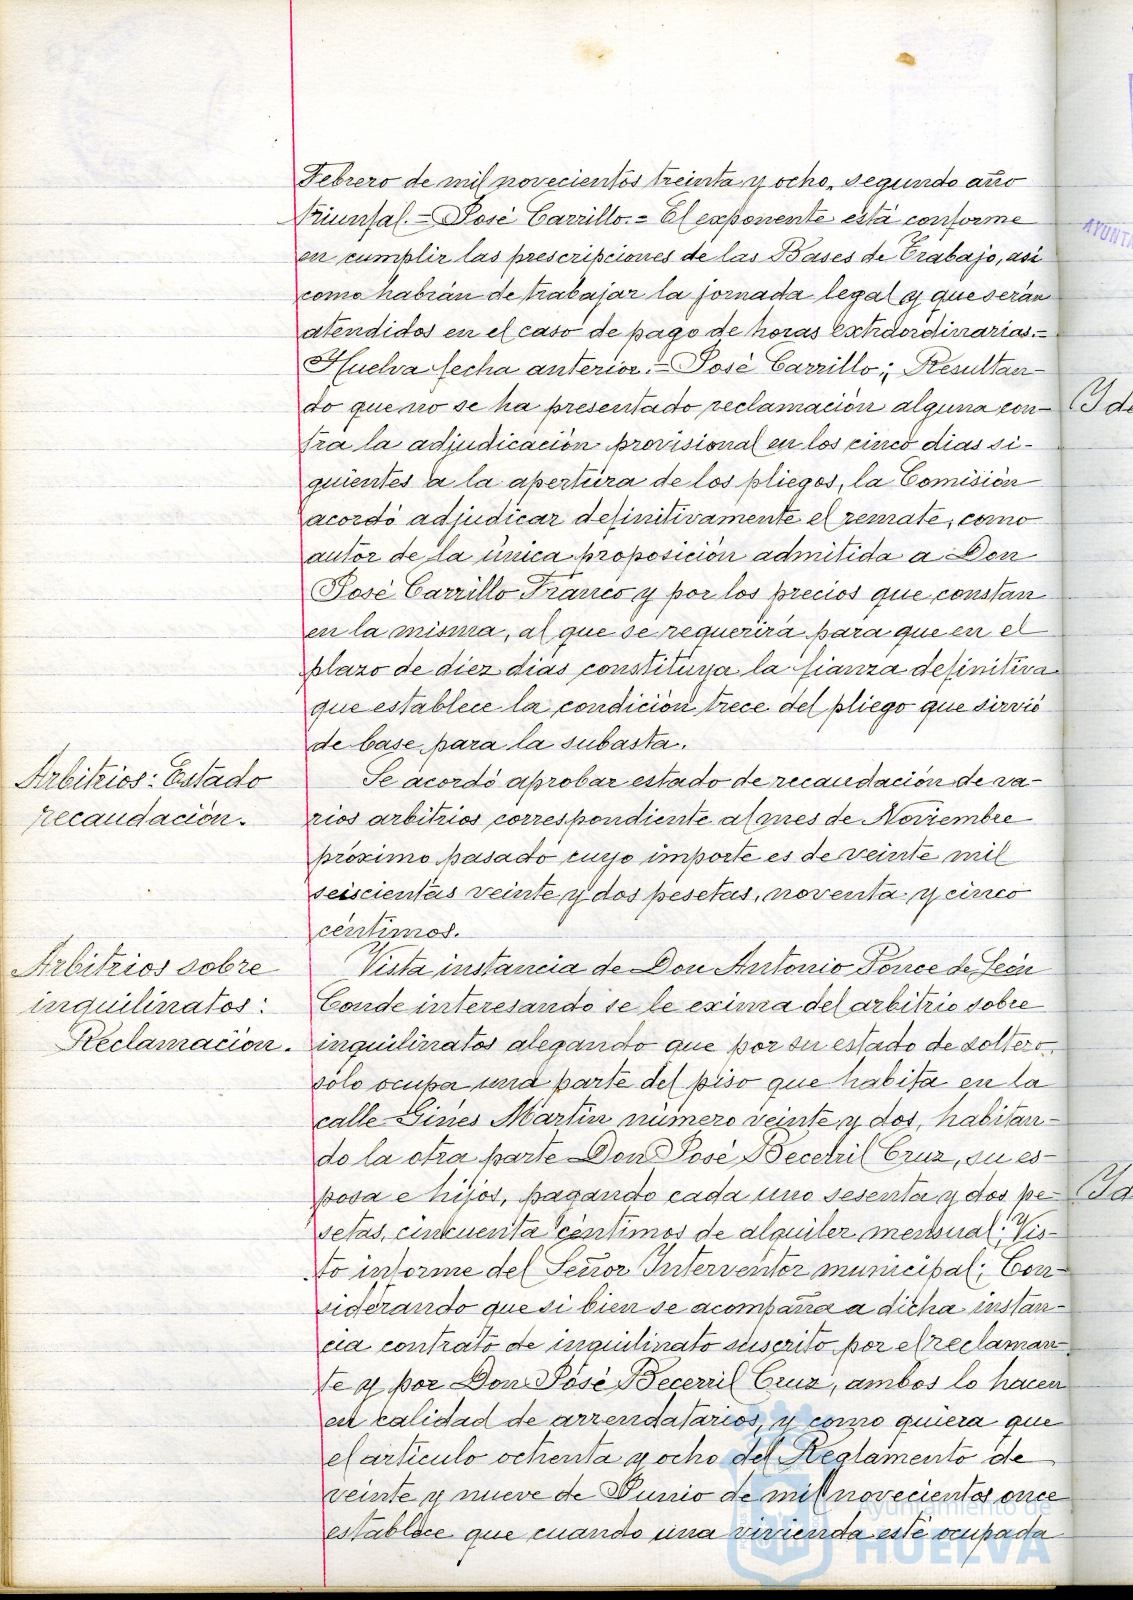 Febrero de mil novecientos treinta y ocho, segundo año
triunfal.=José Carrillo.= El exponente está conforme
en cumplir las prescripciones de las Bases de Trabajo, asi
como habrán de trabajar la jornada legal y que serán
atendidos en el caso de pago de horas extraordinarias.=
Huelva fecha anterior.= José Carrillo; Resultan-
do que no se ha presentado reclamación alguna con-
tra la adjudicación provisional en los cinco dias si-
guientes a la apertura de los pliegos, la Comisión
acordó adjudicar definitivamente el remate, como
autor de la única proposición admitida a Don
José Carrillo Franco y por los precios que constan
en la misma, al que se requerirá para que en el
plazo de diez dias constituya la fianza definitiva
que establece la condición trece del pliego que sirvió
de base para la subasta.
Arbitrios: Estado
recaudación.
Se acordó aprobar estado de recaudación de va-
rios arbitrios correspondiente al mes de Noviembre
próximo pasado cuyo importe es de veinte mil
seiscientas veinte y dos pesetas, noventa y cinco
céntimos.
Arbitrios sobre
inquilinatos:
Reclamación.
Vista instancia de Don Antonio Ponce de León
Conde interesando se le exima del arbitrio sobre
inquilinatos alegando que por su estado de soltero,
sólo ocupa una parte del piso que habita en la
calle Ginés Martín número veinte y dos, habitan-
do la otra parte Don José Becerril Cruz, su es-
posa e hijos, pagando cada uno sesenta y dos pe-
setas, cincuenta céntimos de alquiler mensual; Vis-
to informe del Señor Interventor municipal; Con-
siderando que si bien se acompaña a dicha instan-
cia contrato de inquilinato suscrito por el reclaman-
te y por Don José Becerril Cruz, ambos lo hacen
en calidad de arrendatarios, y como quiera que
el artículo ochenta y ocho del Reglamento de
veinte y nueve de Junio de mil novecientos once
establece que cuando una vivienda esté ocupada
Ayuntamiento de
HUELVA